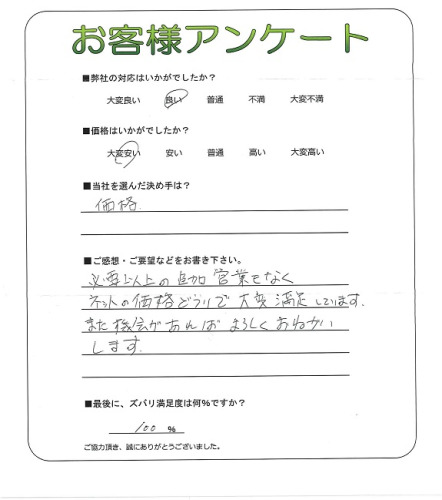 お客様アンケート
■弊社の対応はいかがでしたか?
大変良い 良い 普通 不満 大変不満
■価格はいかがでしたか?
大変安い 安い 普通 高い 大変高い
■当社を選んだ決め手は?
価格
■ご感想・ご要望などをお書き下さい。
必要以上の追加営業もなく
ネットの価格どうりで大変満足しています.
また機会があればよろしくおねがい
します.
■最後に、ズバリ満足度は何%ですか?
100 %
ご協力頂き、誠にありがとうございました。